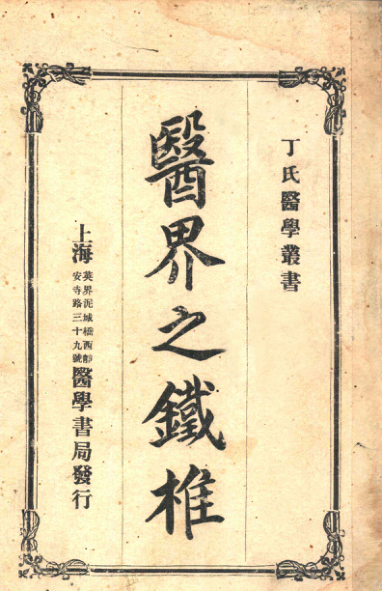 丁氏醫學叢書
醫界之鐵椎
上海
英界泥城橋西靜
安寺路三十九號
醫學書局發行